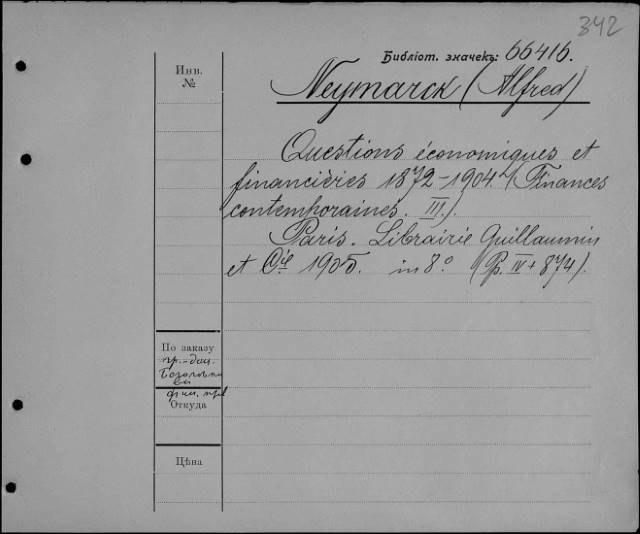 342
Библіот. значекъ: 66416.
Инв.
№
Neymarck (Alfred)
Questions économiques et
financières 1872-1904. (Finances
contemporaines. III.).
Paris. Librairie Guillaumin
et Cie 1905. in 8° (Pp. IV + 874).
По заказу
Откуда
Цѣна